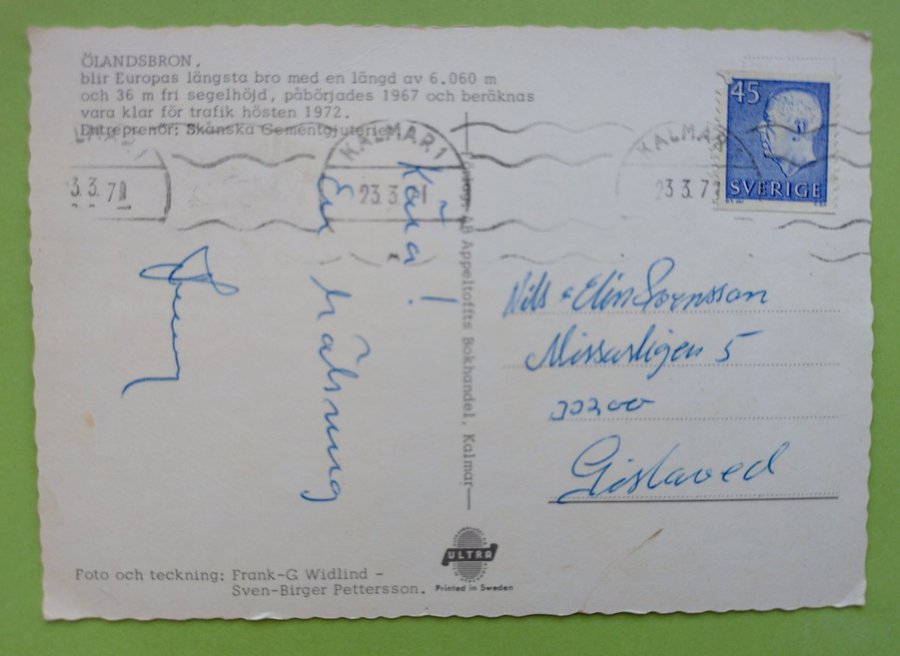 ÖLANDSBRON.
blir Europas längsta bro med en längd av 6.060 m
och 36 m fri segelhöjd, påbörjades 1967 och beräknas
vara klar för trafik hösten 1972.
Entreprenör: Skånska Cementgjuteriet
KALMAR 1
23.3.71
KALMAR
23 3.7
3.3.71
45
SVERIGE
Kära!
En hälsning
AB Appeltoffts Bokhandel, Kalmar
Nils & Elin Svensson
5
33200
Gislaved
ULTRA
Printed in Sweden
Foto och teckning: Frank-G Widlind -
Sven-Birger Pettersson.